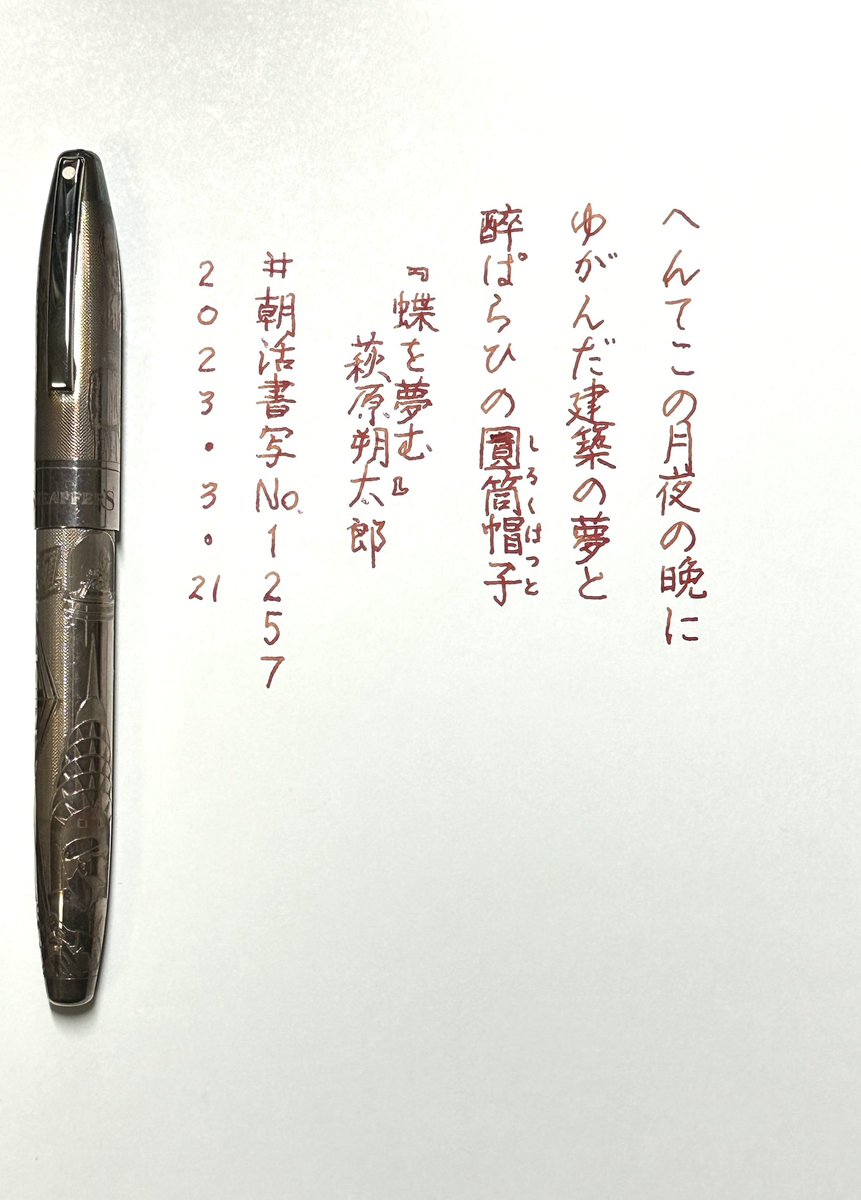 へんてこの月夜の晩に
ゆがんだ建築の夢と
酔ぱらひの圓筒帽子
しるくはつと
『蝶を夢む』
萩原朔太郎
#朝活書写No.1257
2023・3・21
SHEAFFER'S